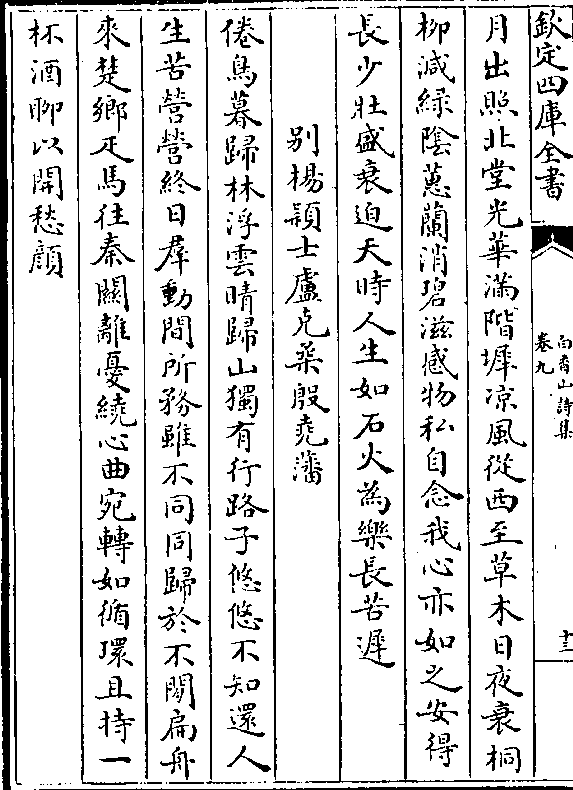 欽定四庫全書
白香山詩集
卷九
十三
月出照北堂光華滿階墀涼風從西至草木日夜衰桐
柳減綠陰蕙蘭消碧滋感物私自念我心亦如之安得
長少壯盛衰迫天時人生如石火為樂長苦遲
別楊穎士盧克柔殷堯藩
倦鳥暮歸林浮雲晴歸山獨有行路子悠悠不知還人
生苦營營終日羣動間所務雖不同同歸於不閑扁舟
來楚鄉疋馬往秦關離憂繞心曲宛轉如循環且持一
杯酒聊以開愁顔